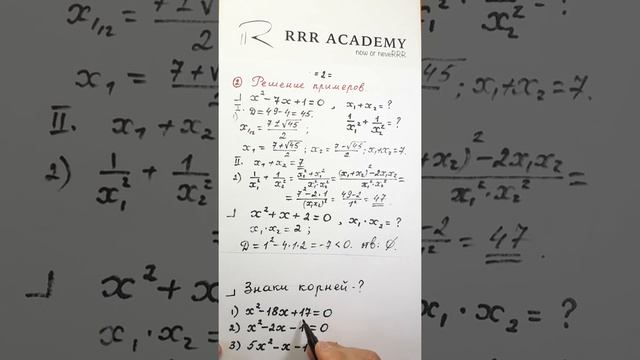 RRR ACADEMY
now or neveRRR
= 2 =
② Решение примеров.
x² - 7x + 1 = 0 , x₁ + x₂ = ?
I.
1) D = 49 - 4 = 45. 1/x₁² + 1/x₂² = ?
x₁,₂ = (7 ± √45)/2 ;
x₁ = (7 + √45)/2 ; x₂ = (7 - √45)/2 ; x₁ + x₂ = 7.
II. x₁ + x₂ = 7
2) 1/x₁² + 1/x₂² = (x₂² + x₁²)/(x₁² · x₂²) = ((x₁ + x₂)² - 2x₁x₂)/(x₁² · x₂²) =
= (7² - 2 · 1)/(x₁x₂)² = (49 - 2)/1² = 47
x² + x + 2 = 0 , x₁ · x₂ = ?
x₁ · x₂ = 2 ;
D = 1² - 4 · 1 · 2 = -7 < 0. отв: ∅.
Знаки корней - ?
1) x² - 18x + 17 = 0
2) x² - 2x - 1 = 0
3) 5x² - x - 1